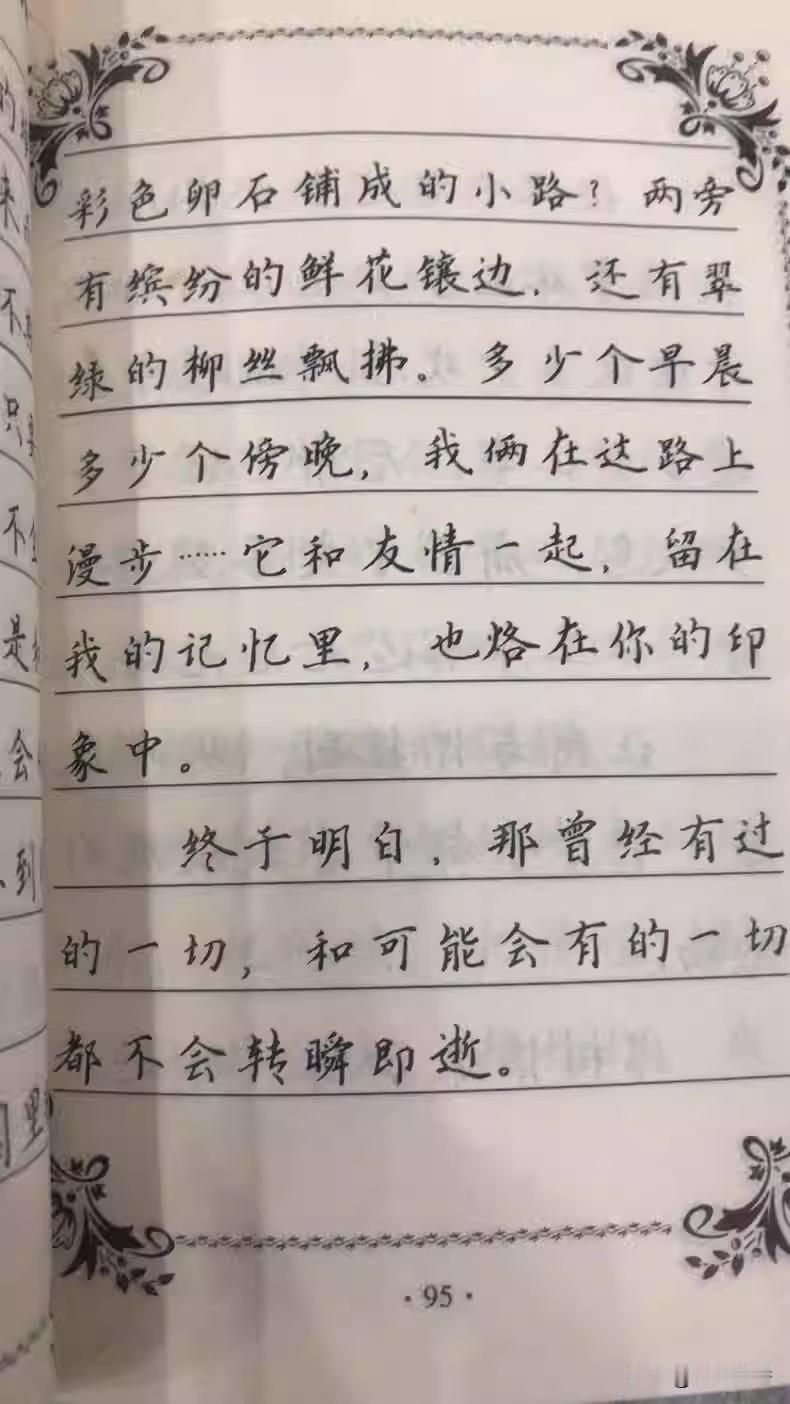 彩色卵石铺成的小路？两旁
有缤纷的鲜花镶边，还有翠
绿的柳丝飘拂。多少个早晨
多少个傍晚，我俩在这路上
漫步……它和友情一起，留在
我的记忆里，也烙在你的印
象中。
终于明白，那曾经有过
的一切，和可能会有的一切
都不会转瞬即逝。
·95·